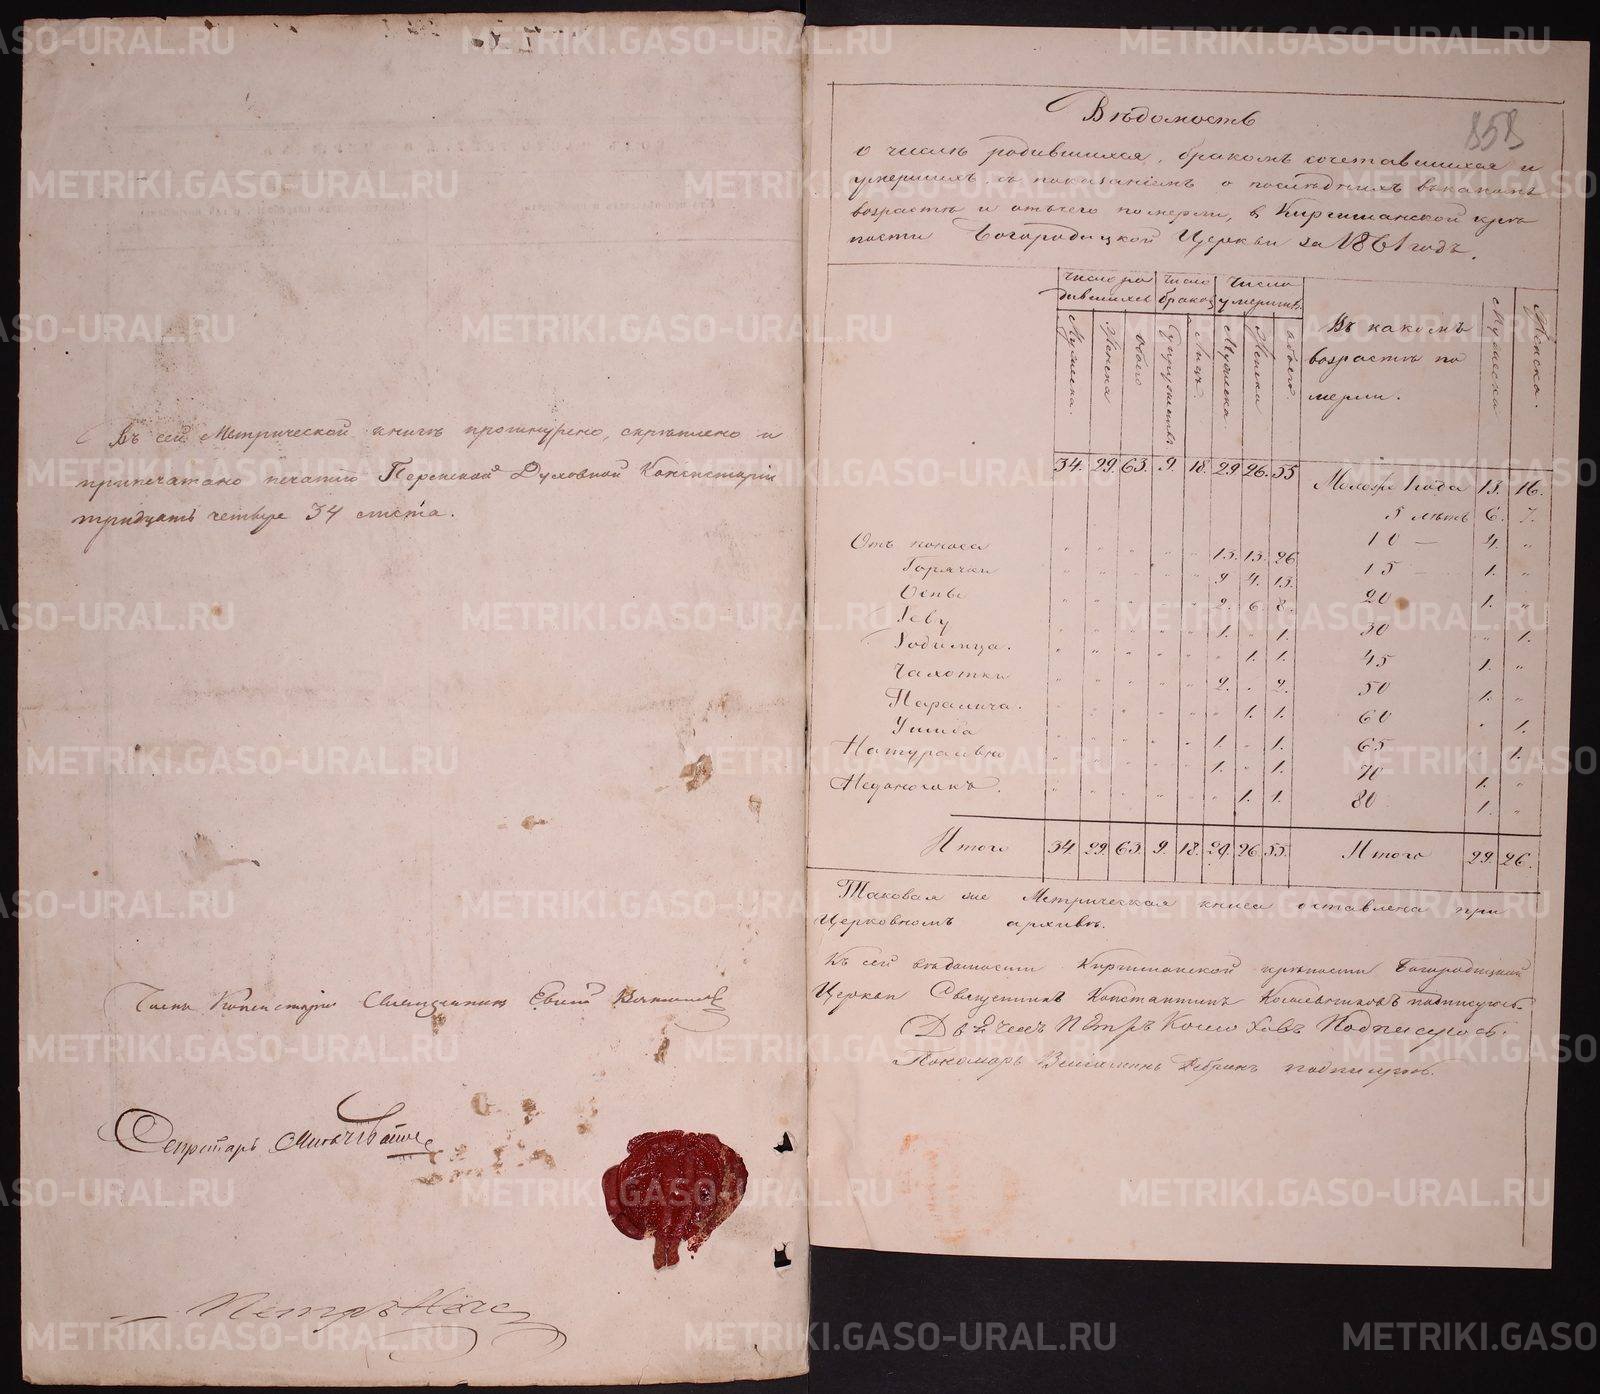 Въ сей Метрической книгѣ прошнурено, скрѣплено и
припечатано печатью Пермской Духовной Консисторіи
тридцать четыре 34 листа.
Членъ Консисторіи Священникъ Евгеній
Секретарь
Петръ
858
Вѣдомость
о числѣ родившихся, бракомъ сочетавшихся и
умершихъ, съ показаніемъ о послѣднихъ въ какомъ
возрастѣ и отъ чего померли, въ Киргишанской крѣ
пости Богородицкой Церкви за 1861 годъ.
число ро
дившихся
Число
браковъ
Число
умершихъ
Мужеска.
Женска
обоего
Супружествъ
Лицъ.
Мужеска
Женска
обоего.
Въ какомъ
возрастѣ по
мерли.
Мужеска
Женска.
34. 29. 63. 9. 18. 29 26. 55
Моложе 1 года 13. 16.
5 лѣтъ 6. 7.
10 — 4. „
15 — 1. „
20 1. „
30 „ 1.
45 1. „
50 1. „
60 „ 1.
65 „ 1.
70 1. „
80 1. „
Отъ поноса „ „ „ „ „ 13. 13. 26
Горячки „ „ „ „ „ 9 4. 13.
Оспы „ „ „ „ „ 2. 6. 8.
Зеву „ „ „ „ „ 1. „ 1.
Родимца. „ „ „ „ „ „ 1. 1.
Чахотки „ „ „ „ „ 2. „ 2.
Паралича. „ „ „ „ „ „ 1. 1.
Ушиба „ „ „ „ „ 1. „ 1.
Натурально „ „ „ „ „ 1. „ 1.
„ „ „ „ „ „ 1. 1.
Итого 34. 29. 63. 9. 18. 29. 26. 55. Итого 29. 26.
Таковая же Метрическая книга оставлена при
Церковномъ архивѣ.
Къ сей вѣдомости Киргишанской крѣпости Богородицкой
Церкви Священникъ Константинъ подписуюсь.
Дьячекъ Петръ Подписуюсь.
Пономарь Веніаминъ подписуюсь.
METRIKI.GASO-URAL.RU